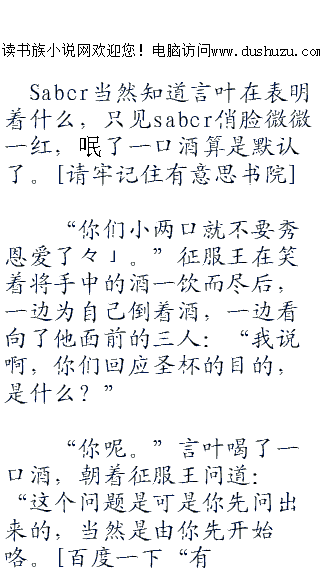 读书族小说网欢迎您! 电脑访问www.dushuzu.com
Sabcr当然知道言叶在表明
着什么，只见sabcr俏脸微微
一红，岷了一口酒算是默认
了。[请牢记住有意思书院]
“你们小两口就不要秀
恩爱了々」。”征服王在笑
着将手中的酒一饮而尽后，
一边为自己倒着酒，一边看
向了他面前的三人：“我说
啊，你们回应圣杯的目的，
是什么？”
“你呢。”言叶喝了一
口酒，朝着征服王问道：
“这个问题是可是你先问出
来的，当然是由你先开始
咯。[百度一下“有